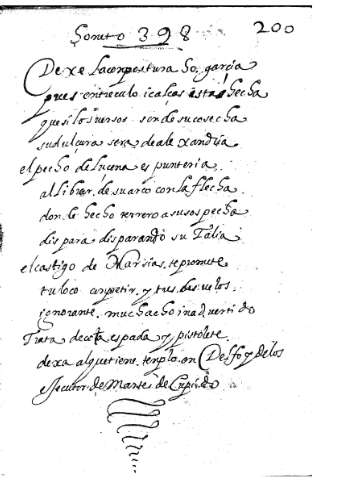 Soneto 398
200
Dexe la conpostura So, garçia
pues entre culo i calças esta hecha
que si los versos son de su cosecha
su dulçura sera de alexandria
el pecho de lucena es punteria
al librar de su arco con la flecha
donde hecho terrero a su sospecha
dispara disparando su Talia
el castigo de Marsias te promete
tu loco conpetir, y tus desvelos
ignorante, muchacho inadvertido
Trata de cota espada y pistolete
dexa al que tiene templo en Delfo y delos
essecutor de Marte i de Cupido